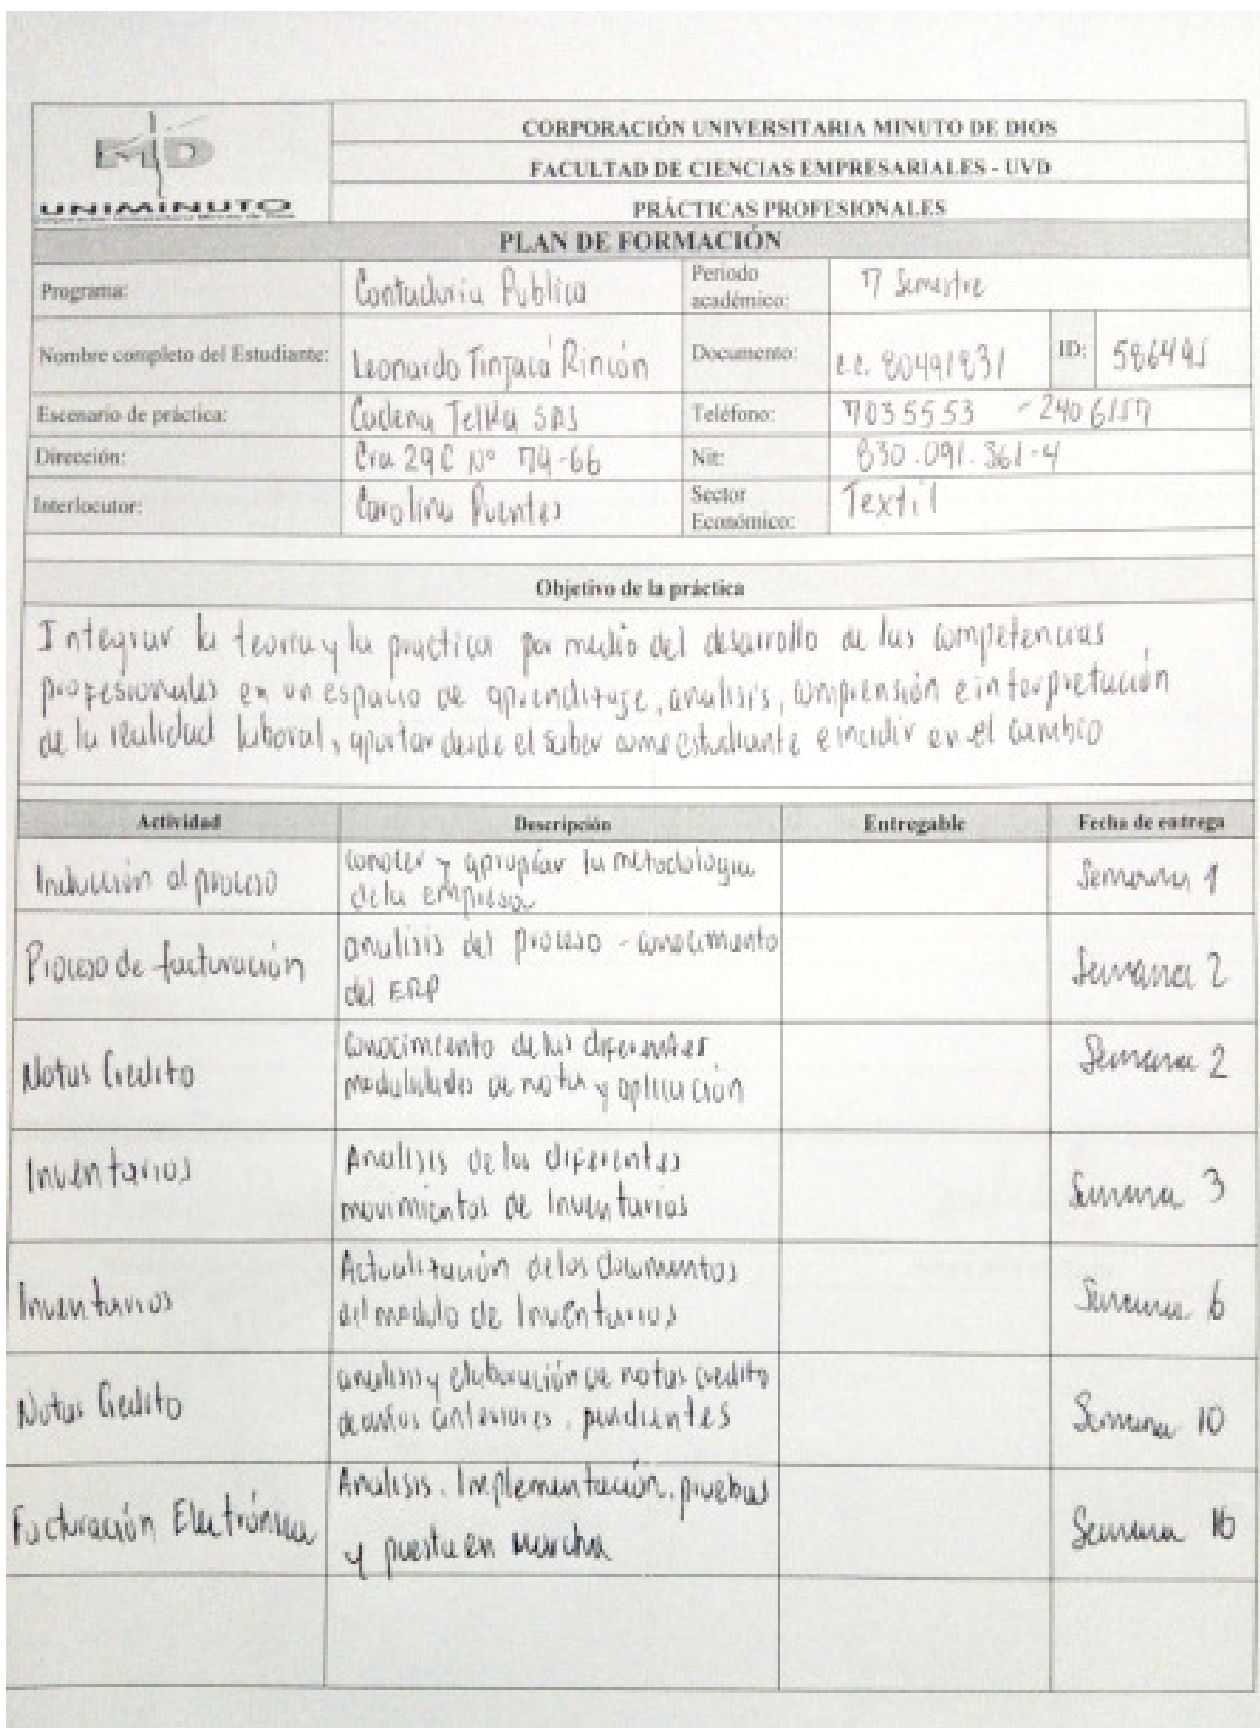 MD
UNIMINUTO
CORPORACIÓN UNIVERSITARIA MINUTO DE DIOS
FACULTAD DE CIENCIAS EMPRESARIALES - UVD
PRÁCTICAS PROFESIONALES
PLAN DE FORMACIÓN
Programa: Contaduria Publica Periodo académico: 7 Semestre
Nombre completo del Estudiante: Leonardo Tinjacá Rincón Documento: c.c. 80491831 ID: 586495
Escenario de práctica: Cadena Telka SAS Teléfono: 7035553 - 2406157
Dirección: Cra 29C Nº 74-66 Nit: 830.091.361-4
Interlocutor: Carolina Puentes Sector Económico: Textil
Objetivo de la práctica
Integrar la teoria y la practica por medio del desarrollo de las competencias
profesionales en un espacio de aprendizaje, analisis, comprensión e interpretación
de la realidad laboral, aportar desde el saber como estudiante e incidir en el cambio
Actividad Descripción Entregable Fecha de entrega
Inducción al proceso conocer y apropiar la metodologia
de la empresa Semana 1
Proceso de facturación analisis del proceso - conocimiento
del ERP Semana 2
Notas Credito conocimiento de las diferentes
modalidades de notas y aplicación Semana 2
Inventarios Analisis de los diferentes
movimientos de Inventarios Semana 3
Inventarios Actualización de los documentos
del modulo de Inventarios Semana 6
Notas Credito analisis y elaboración de notas credito
de años anteriores, pendientes Semana 10
Facturación Electrónica Analisis, Implementación, pruebas
y puesta en marcha Semana 16